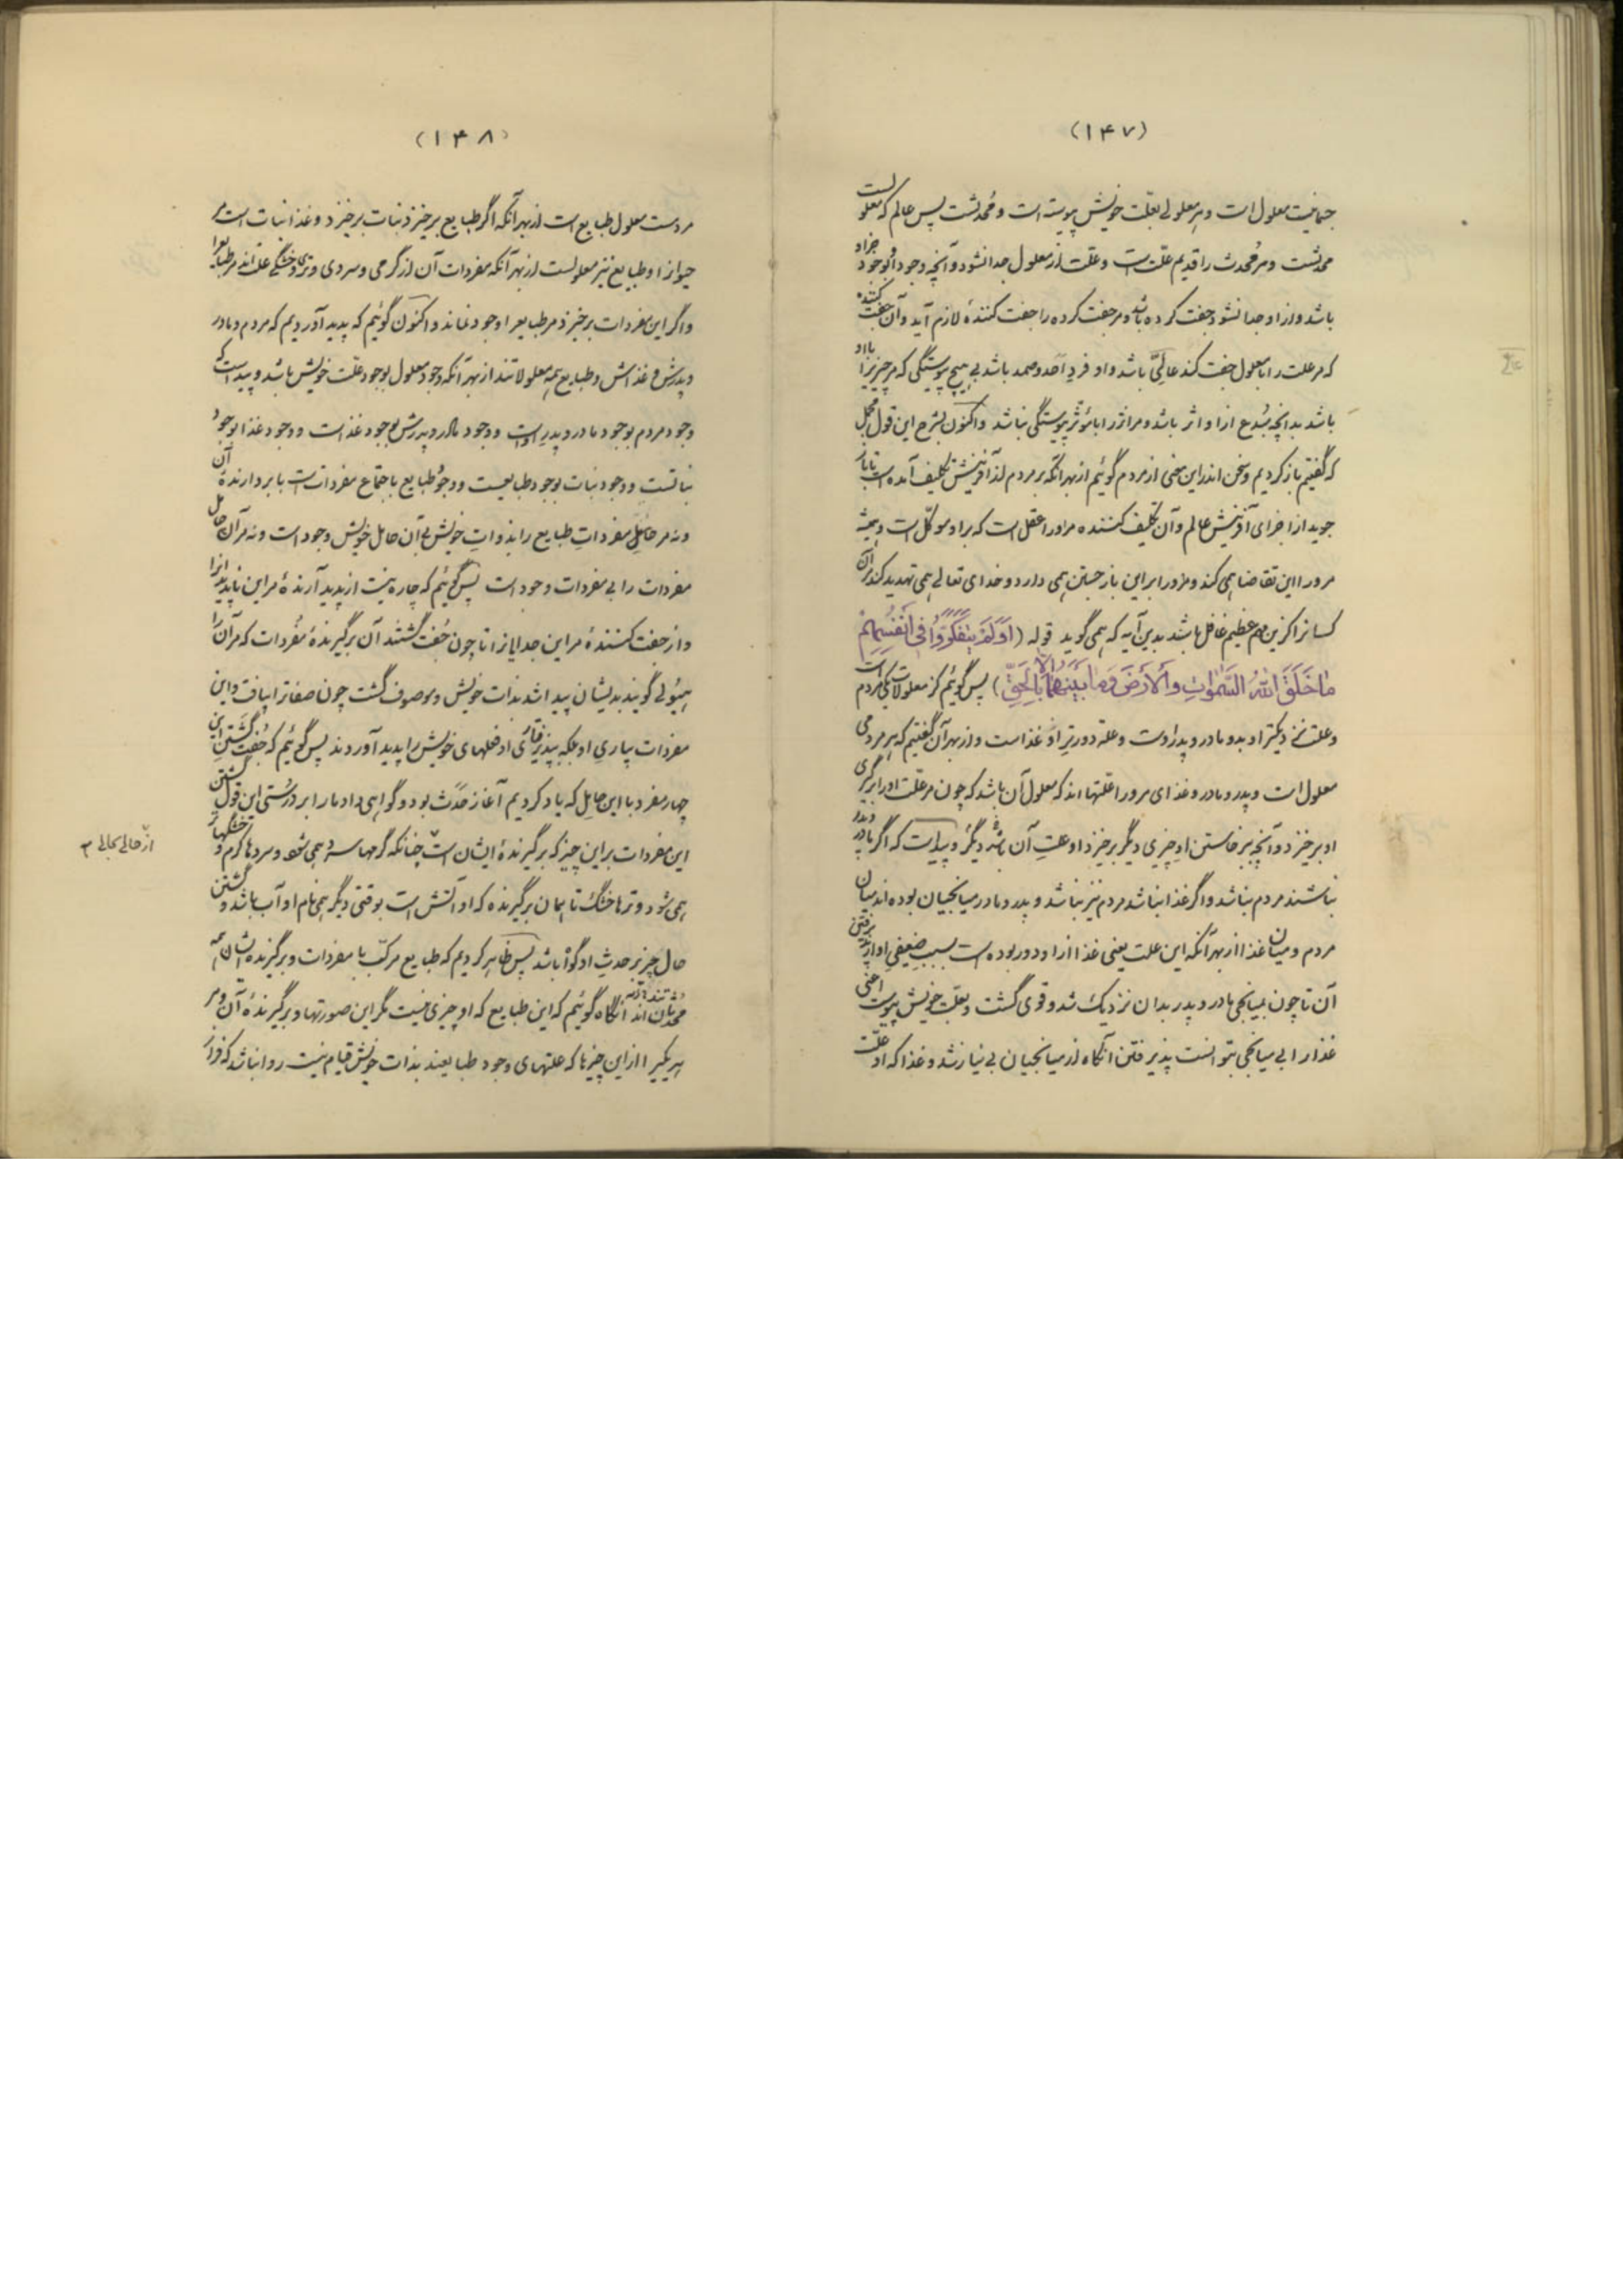 (۱۴۷)
جماعیت معلول است و هر معلولی بعلت خویش پیوسته است و محدثست پس عالم که معلولست
محدثست و هر محدث را قدیم علت است و علت از معلول جدا نشود و آنچه وجود او بوجود جز او
باشد و از او جدا نشود جفت کرده باشد و مر جفت کرده را جفت کنندهٔ لازم آید و آن جفت کننده
که مر علت را با معلول جفت کند عالی باشد و او فرد احد و صمد باشد بی هیچ پیوستگی که مر چیزیرا با او
باشد بدانچه مبدع ازا و اثر باشد و مر اثر را با مؤثر پیوستگی نباشد و اکنون بشرح این قول مجمل
که گفتیم باز کردیم و سخن اندر این معنی از مردم گوئیم از بهر آنکه بر مردم از آفرینش تکلیف آمده است تا باز
جوید از اجزای آفرینش عالم و آن تکلیف کننده مر او را عقل است که بر او موکل است و همیشه
مرورا این تقاضا همی کند و مرورا بر این باز جستن همی دارد و خدای تعالی همی تهدید کند مر آن
کسانرا کزین مهم عظیم غافل باشند بدین آیه که همی گوید قوله (اَوَلَمْ یَتَفَکَّرُوا فی اَنْفُسِهِمْ
ما خَلَقَ اللهُ السَّمٰوٰاتِ وَالاَرْضَ وَما بَیْنَهُما اِلّا بِالْحَقِّ) پس گوئیم کز معلولات یکی مردم است
و علت نزدیکتر او بدو مادر و پدر اوست و علة دورتر او غذاست و از بهر آن گفتیم که هر مردمی
معلول است و پدر و مادر و غذای مرورا علتها اند که معلول آن باشد که چون مر علت او را برگیری
او برخیزد و آنچه ببرخاستن او چیزی دیگر برخیزد او علت آن باشد دیگر و پیداست که اگر مادر و پدر
نباشند مردم نباشد و اگر غذا نباشد مردم نیز نباشد و پدر و مادر میانجیان بوده اند میان
مردم و میان غذا از بهر آنکه این علت یعنی غذا از او دور بوده است بسبب ضعیفی او از پذیرفتن
آن تا چون بمیانجی مادر و پدر بدان نزدیک شد و قوی گشت و بعلت خویش پیوست اعنی
غذا را بی میانجی بتوانست پذیرفتن آنگاه از میانجیان بی نیاز شد و غذا که او علت
(۱۴۸)
مردست معلول طبایع است از بهر آنکه اگر طبایع برخیزد نبات برخیزد و غذا نبات است مر
حیوانرا و طبایع نیز معلولست از بهر آنکه مفردات آن از گرمی و سردی و تری و خشکی علت اند مر طبایع را
و اگر این مفردات برخیزد مر طبایعرا وجود نماند و اکنون گوئیم که پدید آوردیم که مردم و مادر
و پدرش و غذااش و طبایع همه معلولاتند از بهر آنکه وجود معلول بوجود علت خویش باشد و پیداست که
وجود مردم بوجود مادر و پدر اوست و وجود مادر و پدرش بوجود غذاست و وجود غذا بوجود
نباتست و وجود نبات بوجود طبایعست و وجود طبایع باجتماع مفردات است با بردارندهٔ آن
و نه مر حامل مفرداتِ طبایع را بذواتِ خویش بی آن حامل خویش وجود است و نه مر آن حامل
مفردات را بی مفردات وجود است پس گوئیم که چاره نیست از پدید آرندهٔ مر این ناپدیدانرا
و از جفت کنندهٔ مر این جدایانرا تا چون جفت گشتند آن برگیرندهٔ مفردات که مر آنرا
هیولی گویند بدیشان پیدا شد بذات خویش و موصوف گشت چون صفاترا یافت و این
مفردات بیاری او بلکه بپذیرفتاری او فعلهای خویش را پدید آوردند پس گوئیم که جفت گشتن این
چهار مفرد با این حامل که یاد کردیم آغاز حدث بود و گواهی داد ما را بر درستی این قول گشتن
این مفردات بر این چیز که برگیرندهٔ ایشان است چنانکه گرمها سرد همی شود و سردها گرم و خشکها تر
همی شود و ترها خشک تا همان برگیرنده که او آتش است بوقتی دیگر همی نام او آب باشد و گشتن
حال چیز بر حدثِ او گواه باشد پس ظاهر کردیم که طبایع مرکب با مفردات و برگیرنده ایشان همه
محدثان اند آنگاه گوئیم که این طبایع که او چیزی نیست مگر این صورتها و برگیرندهٔ آن و مر
هر یکیرا از این چیزها که علتهای وجود طبایعند بذات خویش قیام نیست روا نباشد که
از حالی بحالی